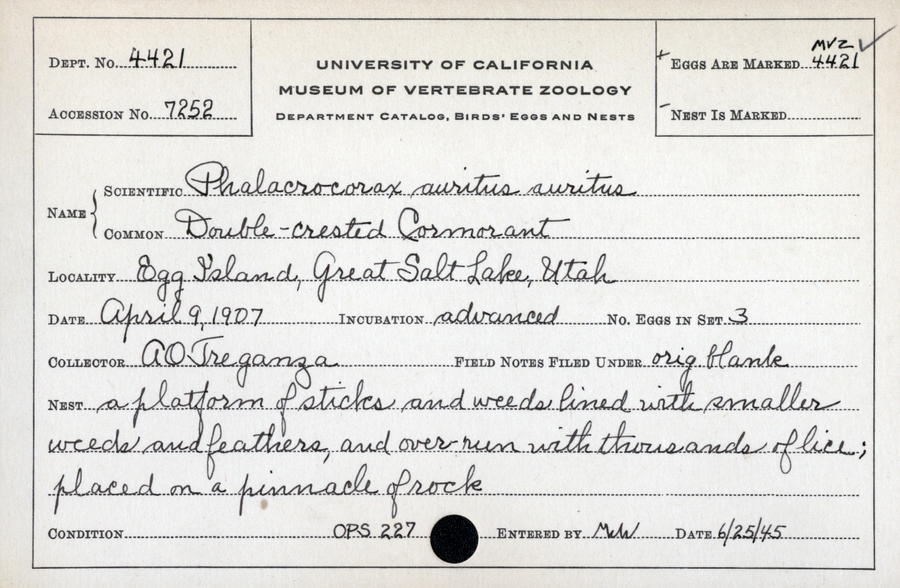 Dept. No. 4421
Accession No. 7252
UNIVERSITY OF CALIFORNIA
MUSEUM OF VERTEBRATE ZOOLOGY
Department Catalog, Birds' Eggs and Nests
+ Eggs Are Marked MVZ 4421 ✓
- Nest Is Marked
Name { Scientific Phalacrocorax auritus auritus
Common Double-crested Cormorant
Locality Egg Island, Great Salt Lake, Utah
Date April 9, 1907 Incubation advanced No. Eggs in Set 3
Collector AO Treganza Field Notes Filed Under orig blank
Nest a platform of sticks and weeds lined with smaller
weeds and feathers, and over-run with thousands of lice;
placed on a pinnacle of rock
Condition OPS 227 Entered by MW Date 6/25/45